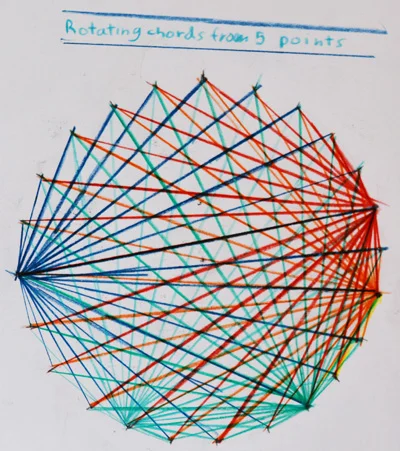 Rotating chords from 5 points